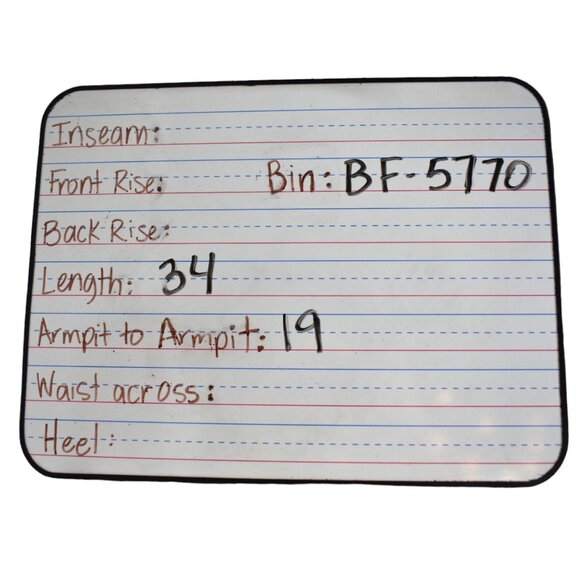 Inseam:
Front Rise: Bin: BF-5770
Back Rise:
Length: 34
Armpit to Armpit: 19
Waist across:
Heel: